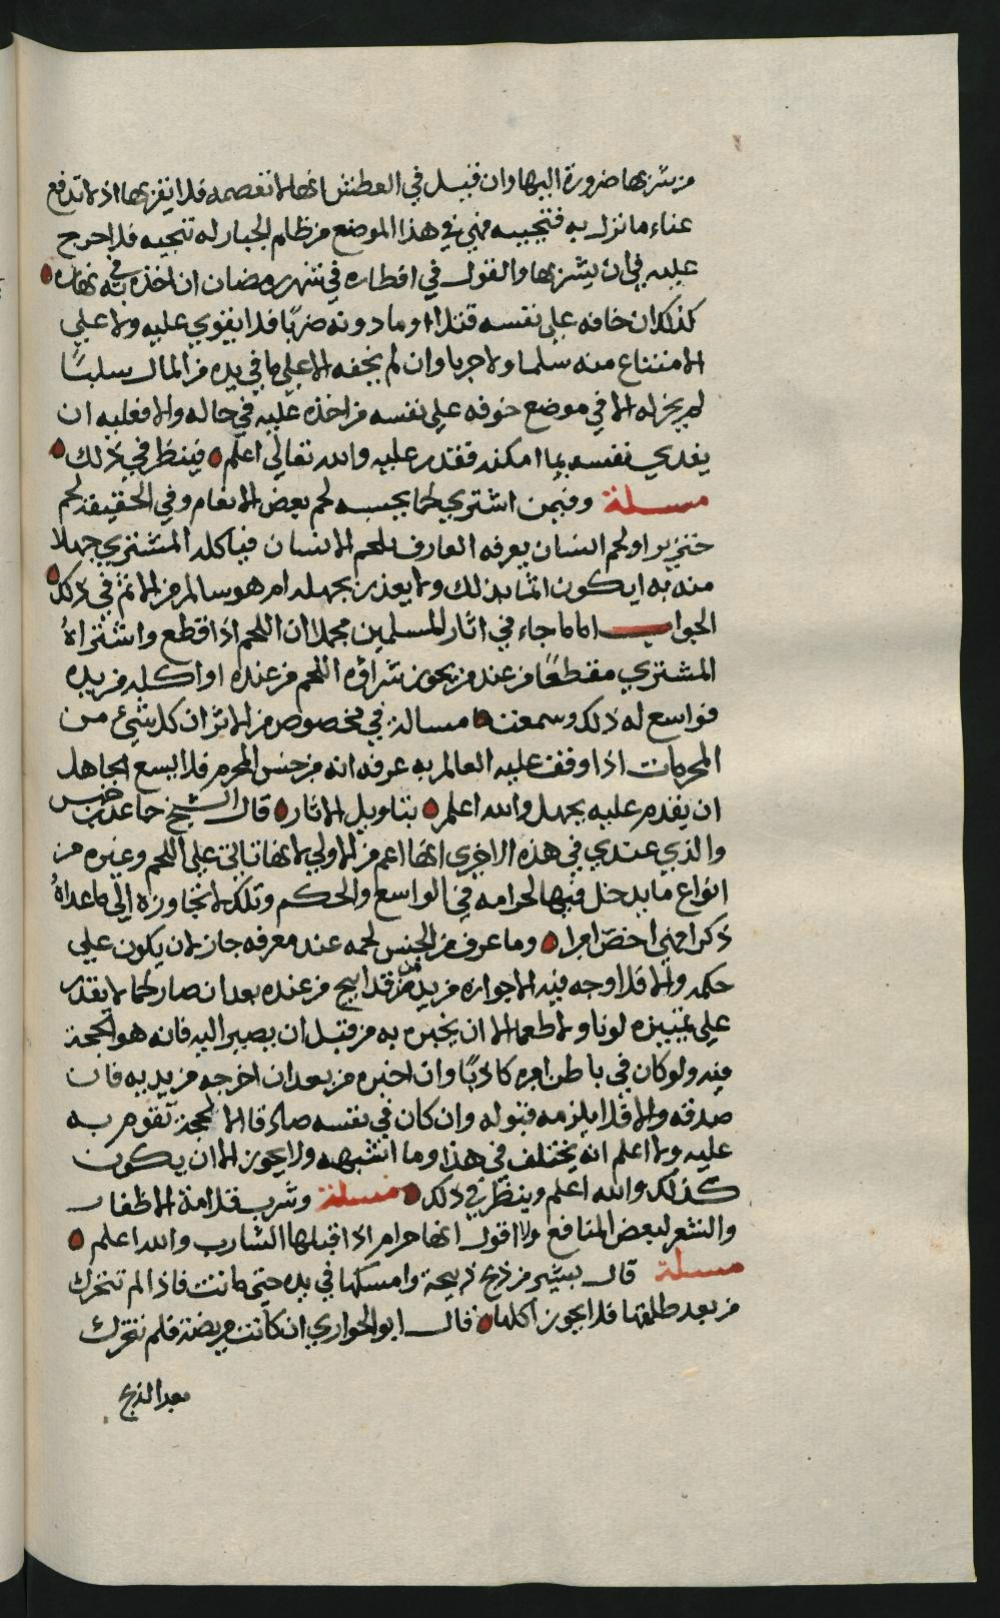 من شربها ضرورة اليها وان قيل في العطش انها لا تعصمه فلا يقربها اذ لا تدفع
عناء ما نزل به فتجيبه فهي في هذا الموضع من ظالم الجبار له تنجيه فلا حرج
عليه في ان يشربها والقول في افطاره في شهر رمضان ان اخذه به في نهاره
كذلك ان خافه على نفسه قتلا او ما دونه ضربا فلا يقوي عليه ولا علي
الامتناع منه سلما ولا حربا وان لم يخفه الا علي ما في يده من المال سلبًا
لم يجز له الا في موضع خوفه علي نفسه من اخذه عليه في حاله والا فعليه ان
يفدي نفسه بما امكنه فقدر عليه والله تعالي اعلم فينظر في ذلك
مسلة وفيمن اشتري لحما يحسبه لحم بعض الانعام وفي الحقيقة لحم
خنزير او لحم انسان يعرفه العارف بلحم الانسان فياكله المشتري جهلا
منه به ايكون اثما بذلك ولا يعذر بجهله ام هو سالم من الاثم في ذلك
الجواب اما ما جاء في اثار المسلمين مجملا ان اللحم اذا قطع واشتراهُ
المشتري مقطعًا من عند من يجوز شراؤه اللحم من عنده او اكله من يده
فواسع له ذلك وسمعت مسالة في مخصوص من الاثر ان كل شيء من
المحرمات اذا وقف عليه العالم به عرفه انه من جنس المحرم فلا يسع الجاهل
ان يقدم عليه بجهل والله اعلم بتاويل الاثار قال الشيخ جاعد بن خميس
والذي عندي في هذه الاخري انها اعم من الاولي لانها تاتي علي اللحم وغيره من
انواع ما يدخل فيها لحرامه في الواسع والحكم وتلك لا تجاوزه الي ما عداهُ
ذكرا فهي اخص امرا وما عرف من الجنس لحمه عند معرفه جاز لان يكون علي
حكمه والا فلا اوجه فيه الا جوازه من يد من قد ابيح من عنده بعد ان صار لحما لا يقدر
علي تمييزه لونا ولا طعما الا ان يخبره به من قبل ان يصير اليه فانه هو الحجة
فيه ولو كان في باطن امره كاذبًا وان اخبره من بعد ان اخرجه من يديه فان
صدقه والا فلا يلزمه قبوله وان كان في نفسه صادقا الا لحجة تقوم به
عليه ولا اعلم انه يختلف في هذا وما اشبهه ولا يجوز الا ان يكون
كذلك والله اعلم وينظر في ذلك مسلة وشرب قلامة الاظفار
والشعر لبعض المنافع ولا اقول انها حرام اذا قبلها الشارب والله اعلم
مسلة قال بشير من ذبح ذبيحة وامسكها في يده حتي ماتت فاذا لم تتحرك
من بعد طلقها فلا يجوز اكلها قال ابو الحواري ان كانت مريضة فلم تتحرك
بعد الذبح